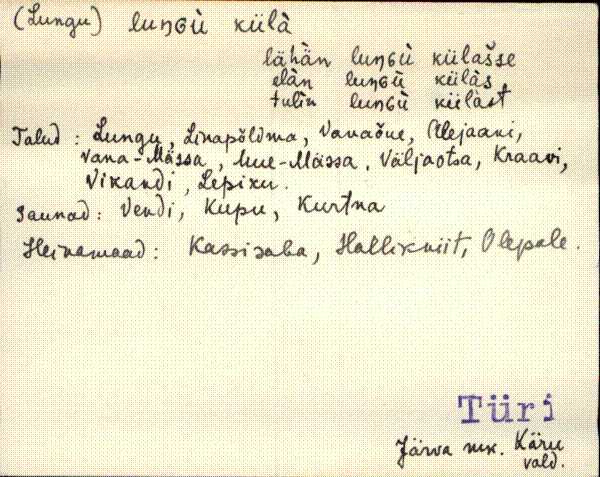 (Lungu) luŋGù külà
lähän luŋGù külàšse
elàn luŋGù külàs
tulin luŋGù külàst
Talud: Lungu, Linapõldma, Vanaõue, Ülejaani,
Vana-Mässa, Uue-Mässa, Väljaotsa, Kraavi,
Vikandi, Lepiku.
Saunad: Vendi, Kupu, Kurtna
Heinamaad: Kassisaba, Hallikniit, Olepale.
Türi
Järva mk. Käru
vald.